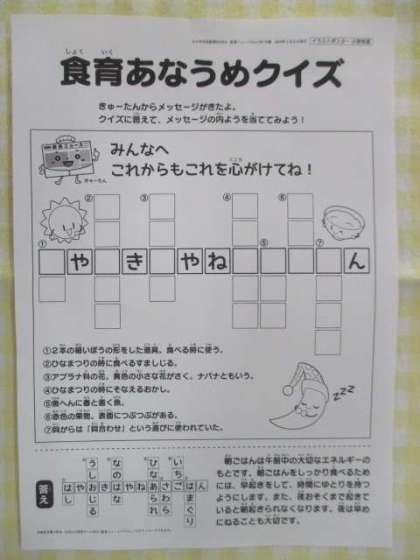 イラストポスター 小学校版
食育あなうめクイズ
しょく いく
きゅーたんからメッセージがきたよ。
クイズに答えて、メッセージの内ようを当ててみよう！
きゅーたん
みんなへ
これからもこれを心がけてね！
こころ
② ③ ④ ⑥
① ⑤ ⑦
や き やね ん
①2本の細いぼうの形をした道具。食べる時に使う。
②ひなまつりの時に食べるすましじる。
③アブラナ科の花。黄色の小さな花がさく。ナバナともいう。
④ひなまつりの時にそなえるおかし。
⑤魚へんに春と書く魚。
⑥赤色の果物。表面につぶつぶがある。
⑦貝がらは「貝合わせ」という遊びに使われていた。
zzz
答え
朝ごはんは午前中の大切なエネルギーの
もとです。朝ごはんをしっかり食べるため
には、早起きをして、時間にゆとりを持つ
ようにします。また、夜おそくまで起きて
いると朝起きられなくなります。夜は早め
にねることも大切です。